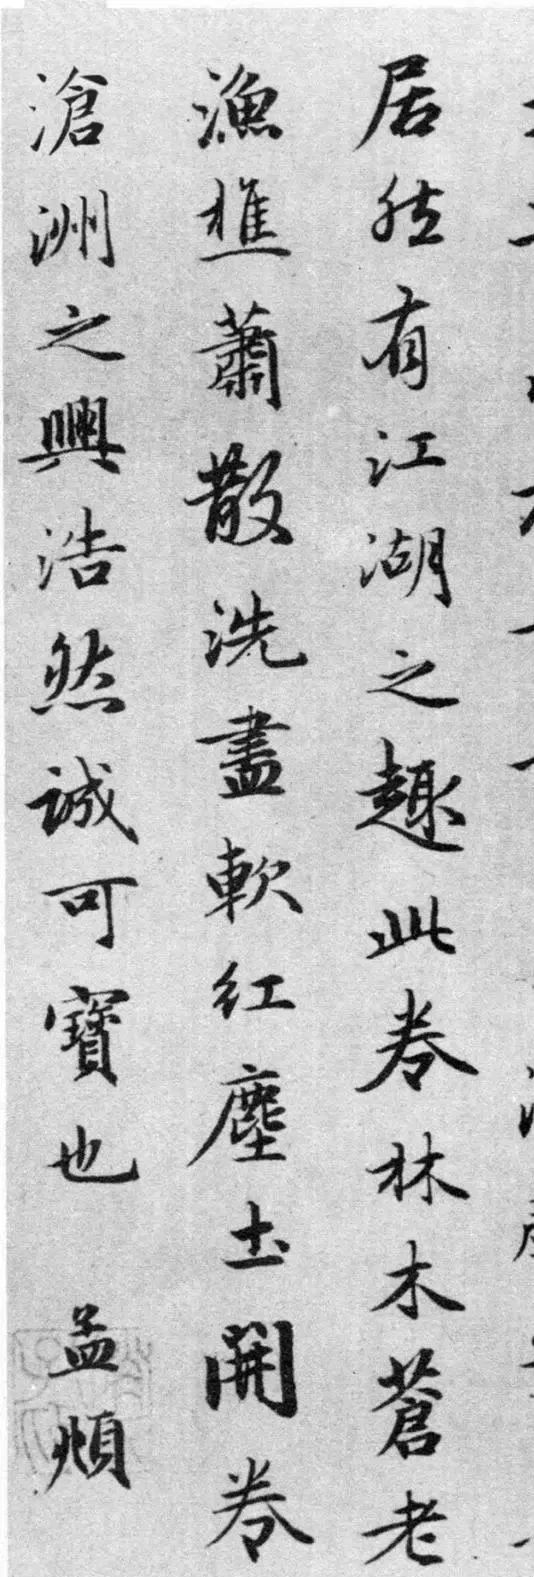 居然有江湖之趣此卷林木蒼老
漁樵蕭散洗盡軟紅塵土開卷
滄洲之興浩然誠可寶也 孟頫